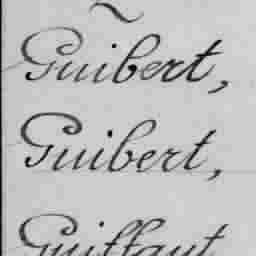 Guibert,
Guibert,
Guiffaut